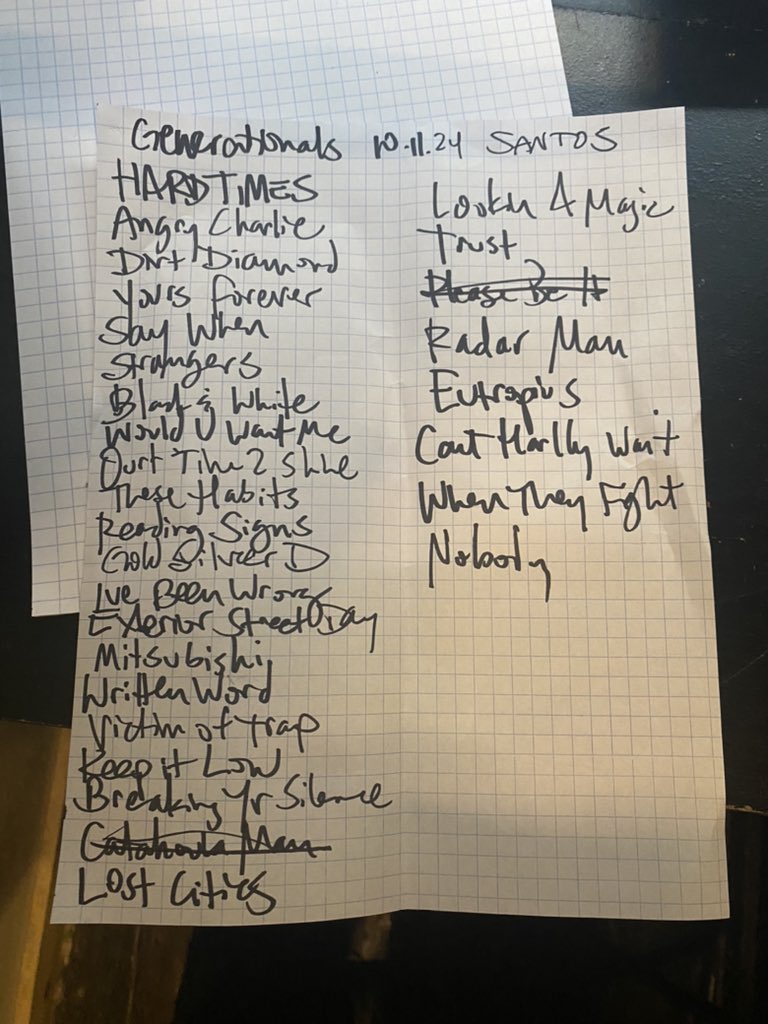 Generationals 10.11.24 SANTOS
HARD TIMES
Angry Charlie
Dirt Diamond
Yours Forever
Say When
Strangers
Black & White
Would U Want Me
Time 2 Shine
These Habits
Reading Signs
Gold Silver D
I've Been Wrong
Exterior Street Day
Mitsubishi
Written Word
Victim of Trap
Keep it Low
Breaking Yr Silence
Catahoula Man
Lost Cities
Lookin 4 Magic
Trust
Please Be It
Radar Man
Eutropius
Cant Hardly Wait
When They Fight
Nobody